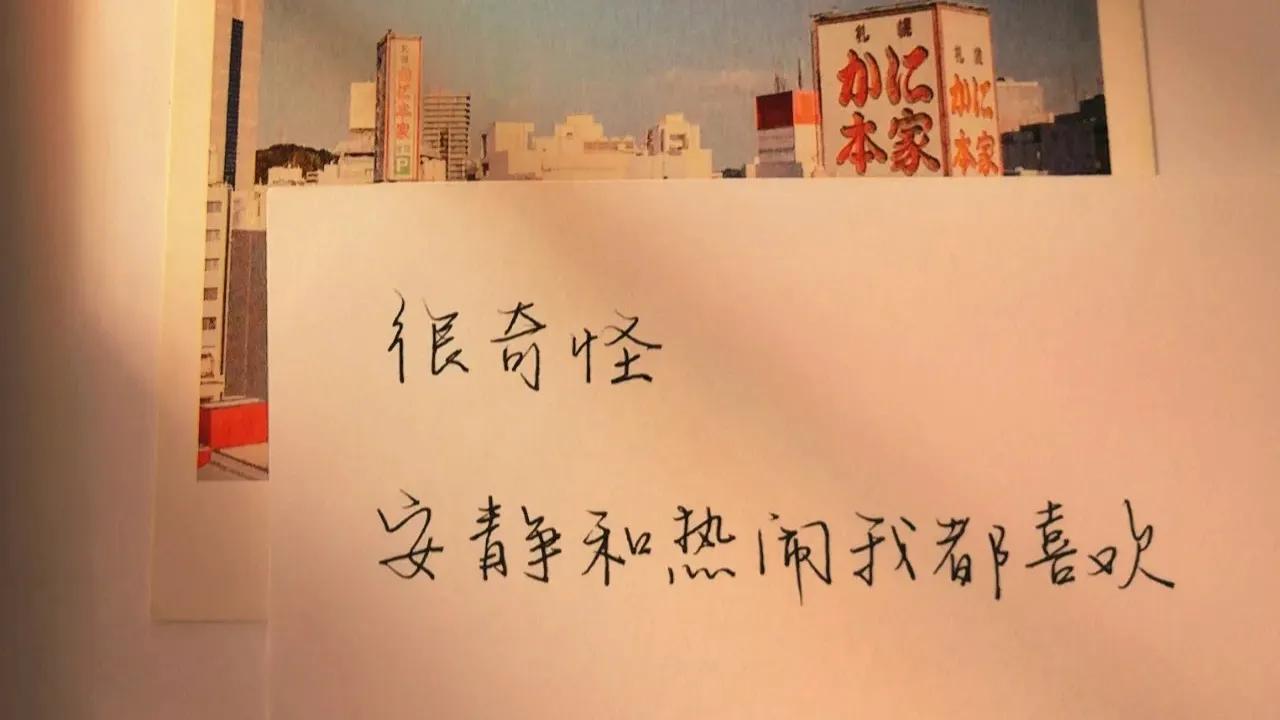 札幌
かに
本家
札幌
かに
本家
札幌
かに本家
P
很奇怪
安静和热闹我都喜欢